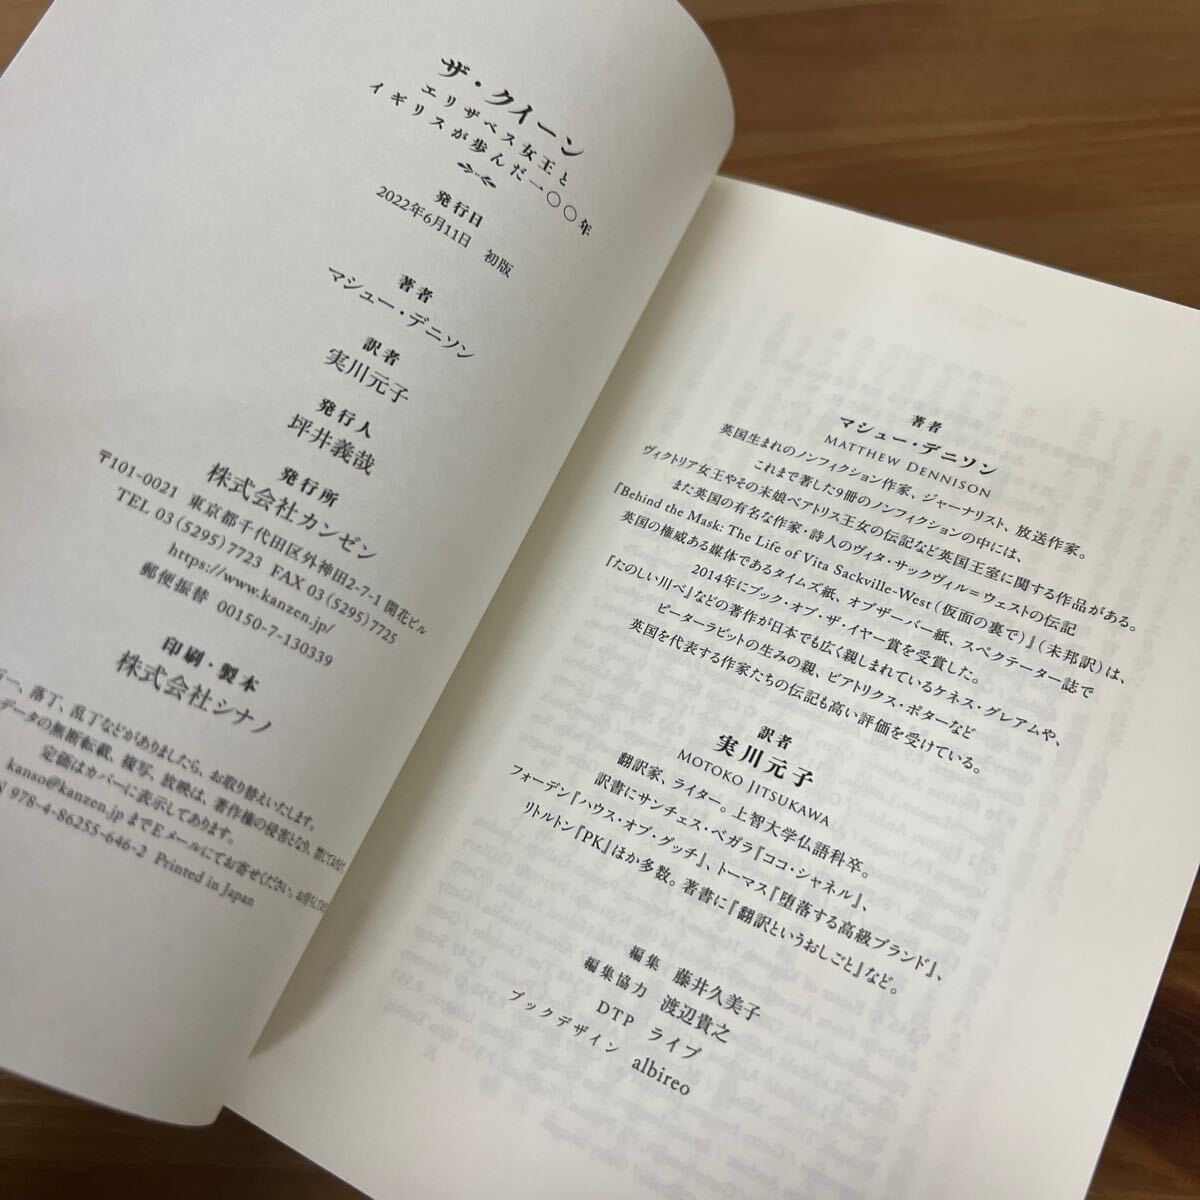 ザ・クイーン
エリザベス女王と
イギリスが歩んだ一〇〇年
発行日
2022年6月11日 初版
著者
マシュー・デニソン
訳者
実川元子
発行人
坪井義哉
発行所
株式会社カンゼン
〒101-0021 東京都千代田区外神田2-7-1 開花ビル
TEL 03(5295)7723 FAX 03(5295)7725
https://www.kanzen.jp/
郵便振替 00150-7-130339
印刷・製本
株式会社シナノ
落丁、乱丁などがありましたら、お取り替えいたします。
データの無断転載、複写、放映は、著作権の侵害となり、禁じて
定価はカバーに表示してあります。
kanso@kanzen.jp までEメールにてお寄せください。
978-4-86255-646-2 Printed in Japan
著者
マシュー・デニソン
MATTHEW DENNISON
英国生まれのノンフィクション作家、ジャーナリスト、放送作家。
これまで著した9冊のノンフィクションの中には、
ヴィクトリア女王やその末娘ベアトリス王女の伝記など英国王室に関する作品がある。
また英国の有名な作家・詩人のヴィタ・サックヴィル＝ウェストの伝記
『Behind the Mask: The Life of Vita Sackville-West（仮面の裏で）』（未邦訳）は、
英国の権威ある媒体であるタイムズ紙、オブザーバー紙、スペクテーター誌で
2014年にブック・オブ・ザ・イヤー賞を受賞した。
『たのしい川べ』などの著作が日本でも広く親しまれているケネス・グレアムや、
ピーターラビットの生みの親、ビアトリクス・ポターなど
英国を代表する作家たちの伝記も高い評価を受けている。
訳者
実川元子
MOTOKO JITSUKAWA
翻訳家、ライター。上智大学仏語科卒。
訳書にサンチェス・ベガラ『ココ・シャネル』、
フォーデン『ハウス・オブ・グッチ』、トーマス『堕落する高級ブランド』、
リトルトン『PK』ほか多数。著書に『翻訳というおしごと』など。
編集 藤井久美子
編集協力 渡辺貴之
DTP ライブ
ブックデザイン albireo